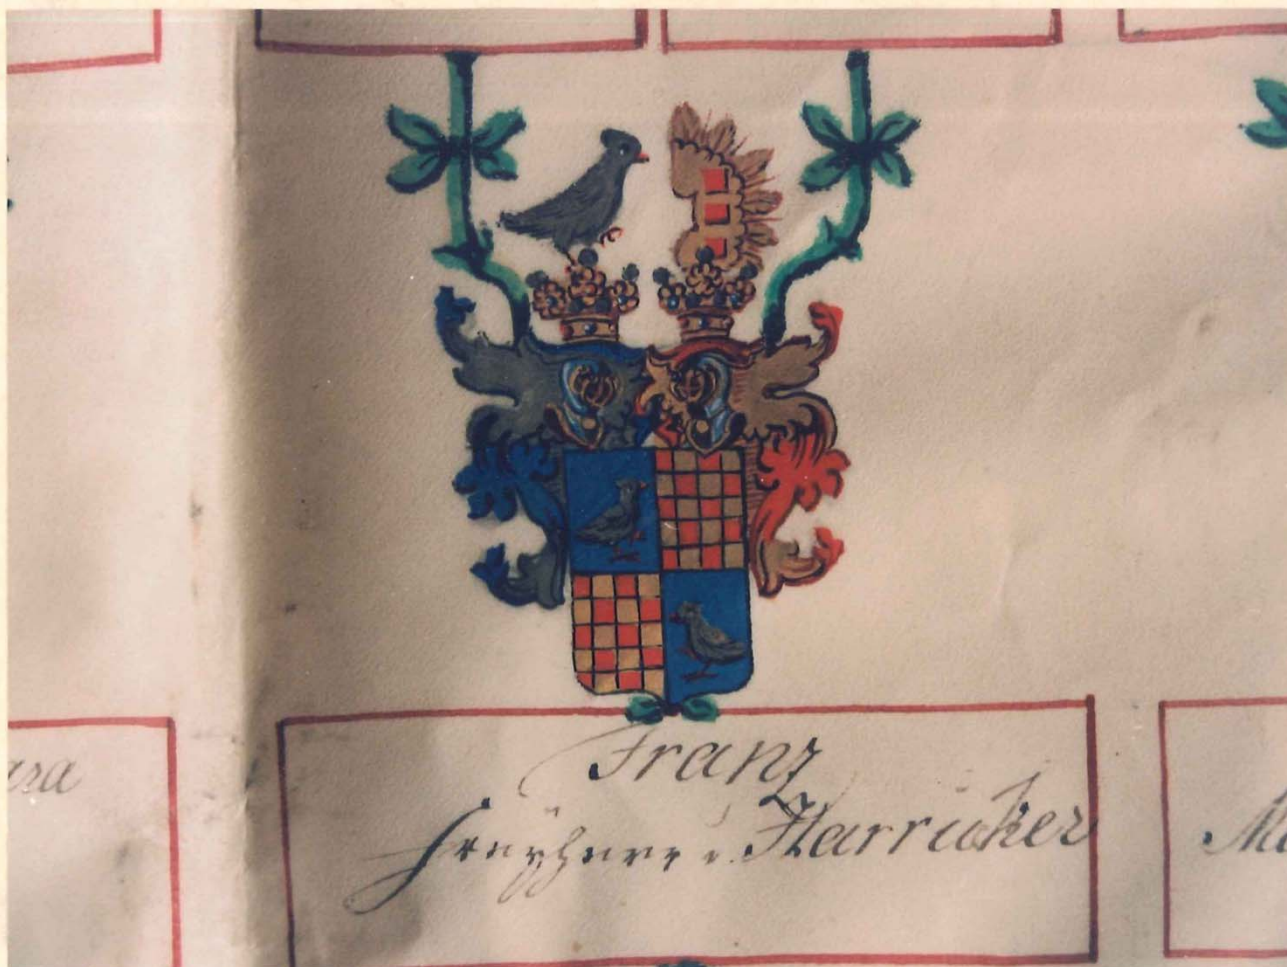 ara
Franz
Freyherr v. Harrucker
Ma